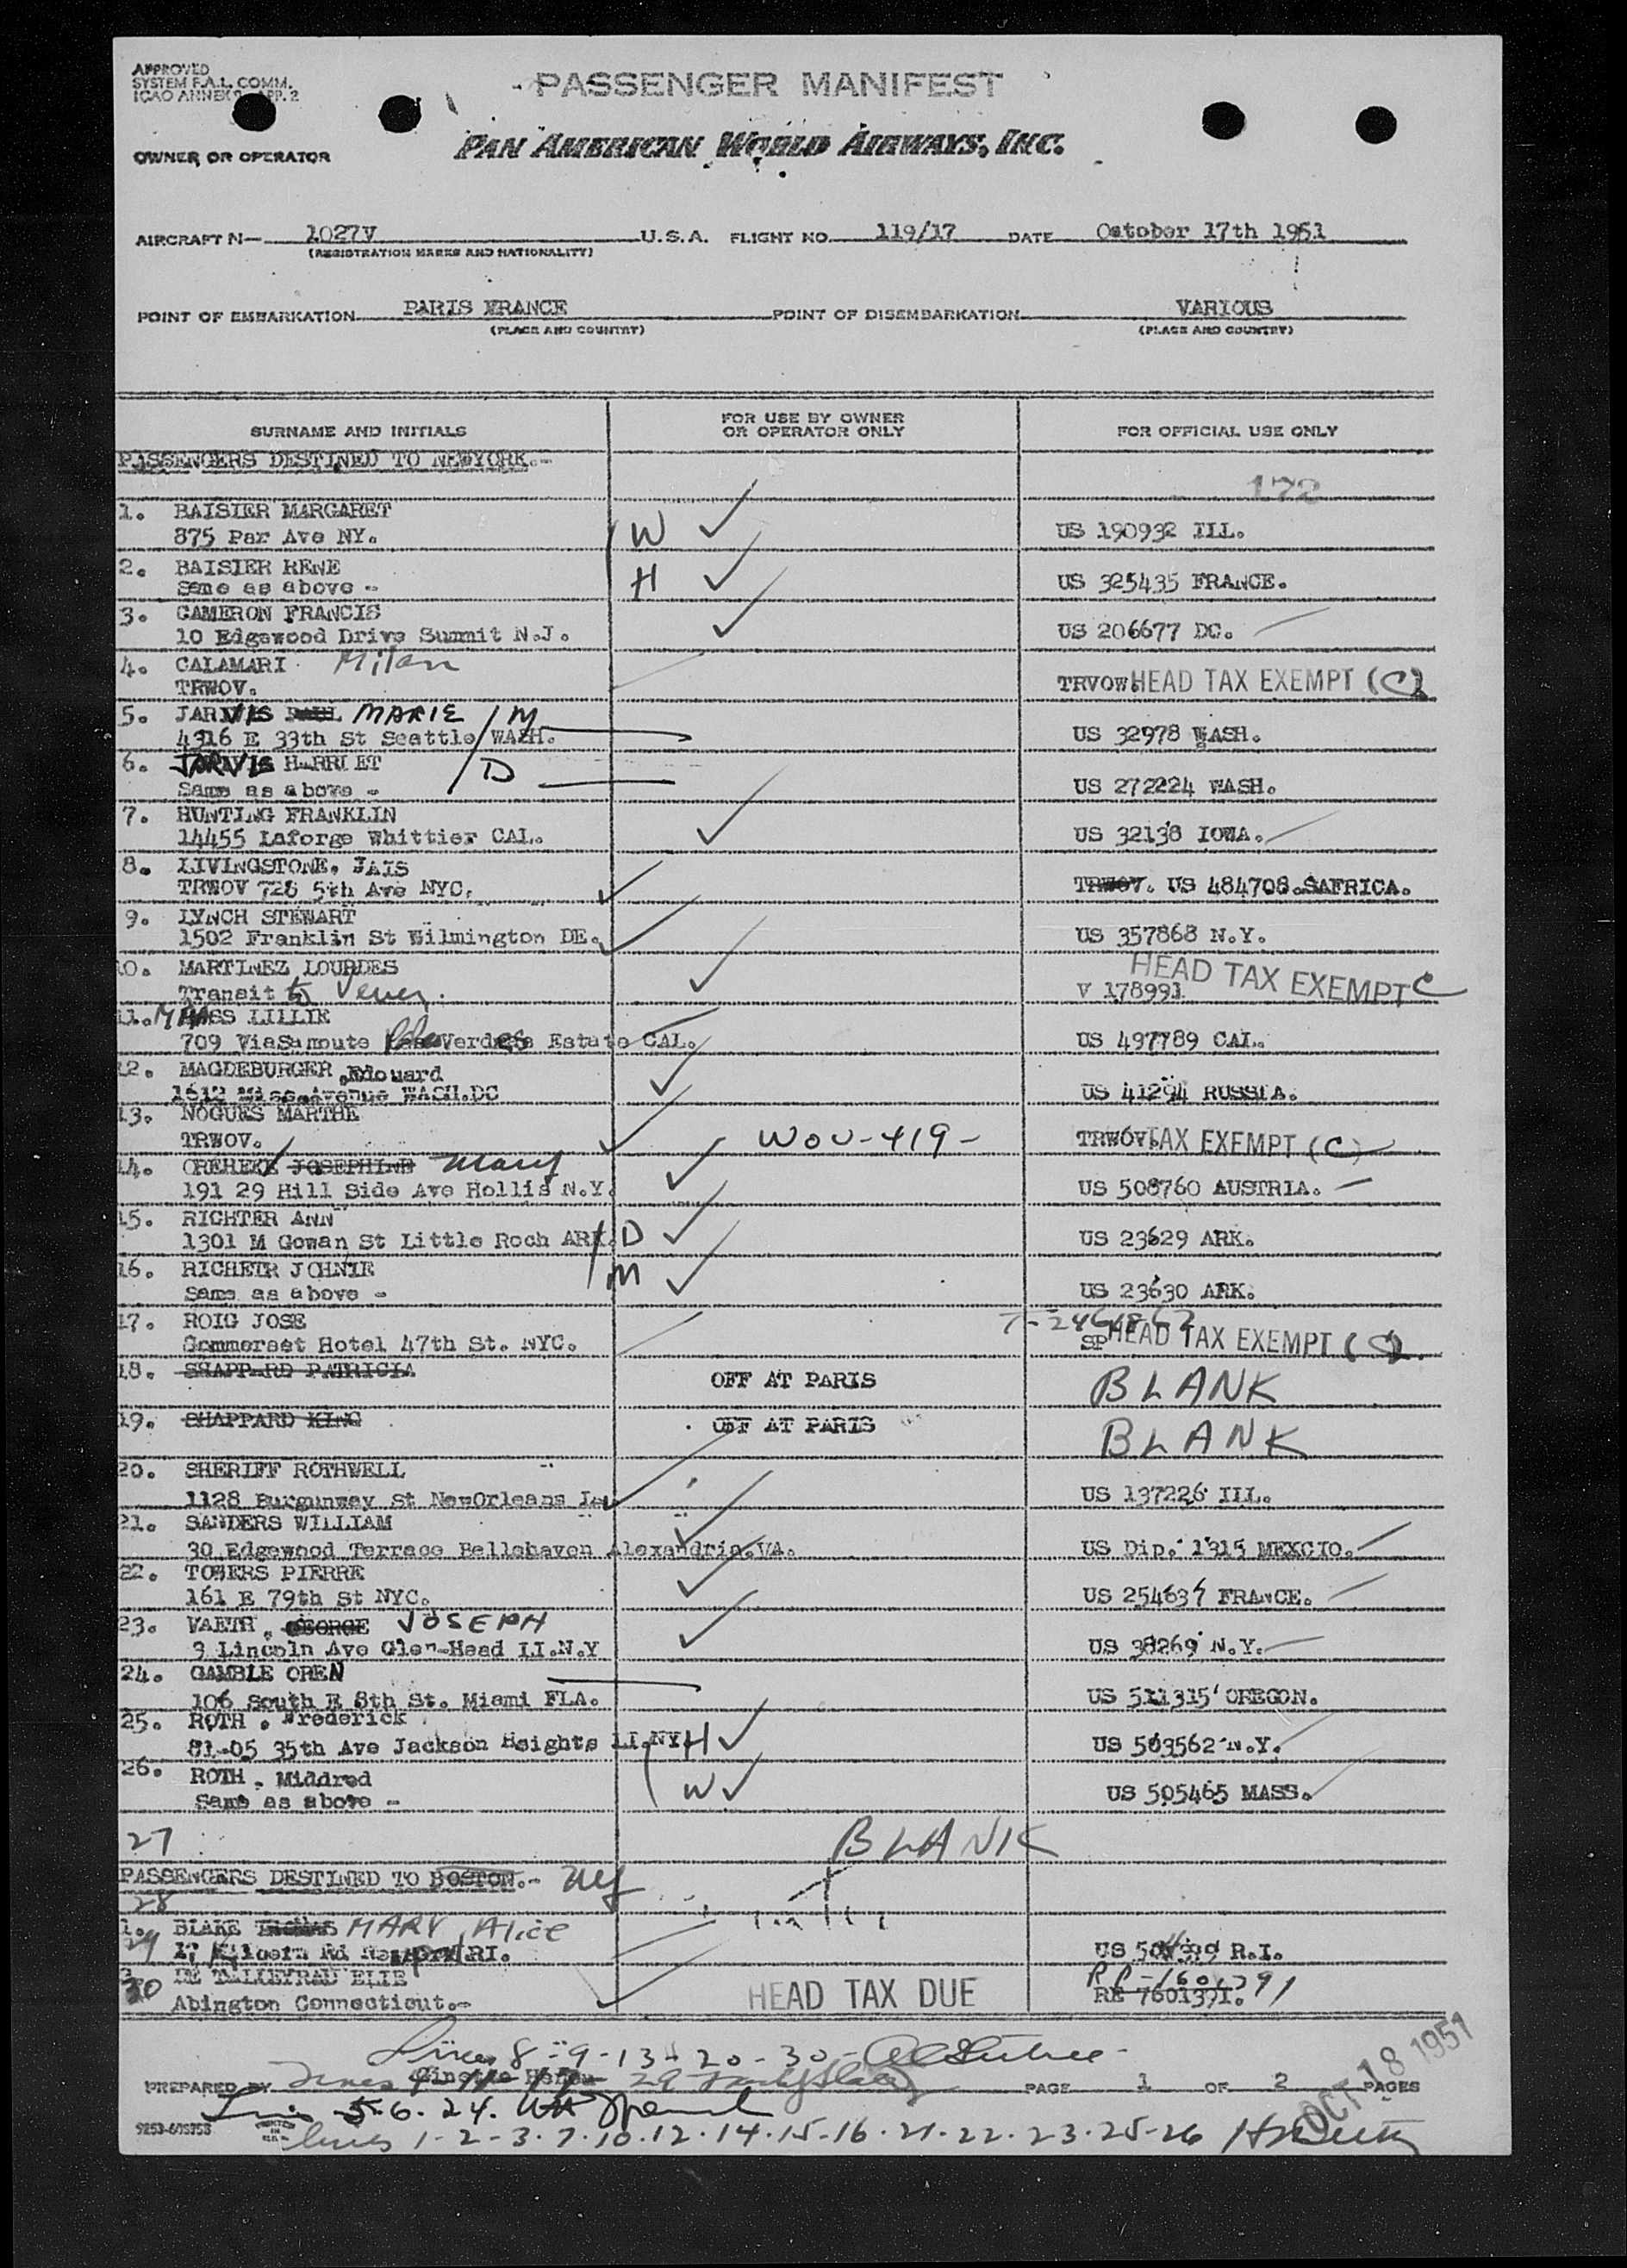 APPROVED
SYSTEM F.A.L. COMM.
ICAO ANNEX 9 APP. 2
PASSENGER MANIFEST
OWNER OR OPERATOR
PAN AMERICAN WORLD AIRWAYS, INC.
AIRCRAFT N— 1027V U.S.A. FLIGHT NO. 119/17 DATE October 17th 1951
(REGISTRATION MARKS AND NATIONALITY)
POINT OF EMBARKATION PARIS FRANCE POINT OF DISEMBARKATION VARIOUS
(PLACE AND COUNTRY) (PLACE AND COUNTRY)
SURNAME AND INITIALS FOR USE BY OWNER OR OPERATOR ONLY FOR OFFICIAL USE ONLY
PASSENGERS DESTINED TO NEWYORK.-
172
1. BAISIER MARGARET
875 Par Ave NY. W US 190932 ILL.
2. BAISIER RENE
Same as above - H US 325435 FRANCE.
3. CAMERON FRANCIS
10 Edgewood Drive Summit N.J. US 206677 DC.
4. CALAMARI Milan
TRWOV. TRVOW HEAD TAX EXEMPT (C)
5. JARVIS MARIE M
4316 E 33th St Seattle WASH. US 32978 WASH.
6. JARVIS HARRIET D
Same as above - US 272224 WASH.
7. HUNTING FRANKLIN
14455 Laforge Whittier CAL. US 32138 IOWA.
8. LIVINGSTONE, JAIS
TRWOV 728 5th Ave NYC. TRWOV. US 484708.SAFRICA.
9. LYNCH STEWART
1502 Franklin St Wilmington DE. US 357868 N.Y.
10. MARTINEZ LOURDES HEAD TAX EXEMPT C
Transit to Venez. V 178991
11. MAASS LILLIE
709 ViaSamoute Verdes Estate CAL. US 497789 CAL.
12. MAGDEBURGER, Edouard
1612 Mass.Avenue WASH.DC US 41294 RUSSIA.
13. NOGUES MARTHE
TRWOV. WOV-419- TRWOV. TAX EXEMPT (C)
14. JOSEPHINE Mary
191 29 Hill Side Ave Hollis N.Y. US 508760 AUSTRIA.
15. RICHTER ANN
1301 M Gowan St Little Roch ARK. D US 23629 ARK.
16. RICHETR JOHNIE M
Same as above - US 23630 ARK.
17. ROIG JOSE
Sommerset Hotel 47th St. NYC. SP HEAD TAX EXEMPT (C)
18. SHAPPARD PATRICIA OFF AT PARIS BLANK
19. SHAPPARD KING OFF AT PARIS BLANK
20. SHERIFF ROTHWELL
1128 Burgunwey St NewOrleans La US 137226 ILL.
21. SANDERS WILLIAM
30 Edgewood Terrace Bellehaven Alexandria.VA. US Dip. 1315 MEXCIO.
22. TOWERS PIERRE
161 E 79th St NYC. US 254637 FRANCE.
23. VAETH, GEORGE JOSEPH
3 Lincoln Ave Glen-Head LI.N.Y US 38269 N.Y.
24. GAMBLE OREN
106 South E 8th St. Miami FLA. US 511315 OREGON.
25. ROTH, Frederick
81-05 35th Ave Jackson Heights LI.NY. H US 503562 N.Y.
26. ROTH, Mildred
Same as above - W US 505465 MASS.
27 BLANK
PASSENGERS DESTINED TO BOSTON.- NY
28
1. BLAKE THOMAS MARY Alice
29 17 Rd Newport RI. US R.I.
30 DE TALLEYRAD ELIE
Abington Connecticut.- HEAD TAX DUE RE 7601391.
Lines 8-9-13-20-30-
PREPARED BY PAGE 1 OF 2 PAGES
OCT 18 1951
Lines 5-6-24.
9253-605758
lines 1-2-3-7-10-12-14-15-16-21-22-23-25-26